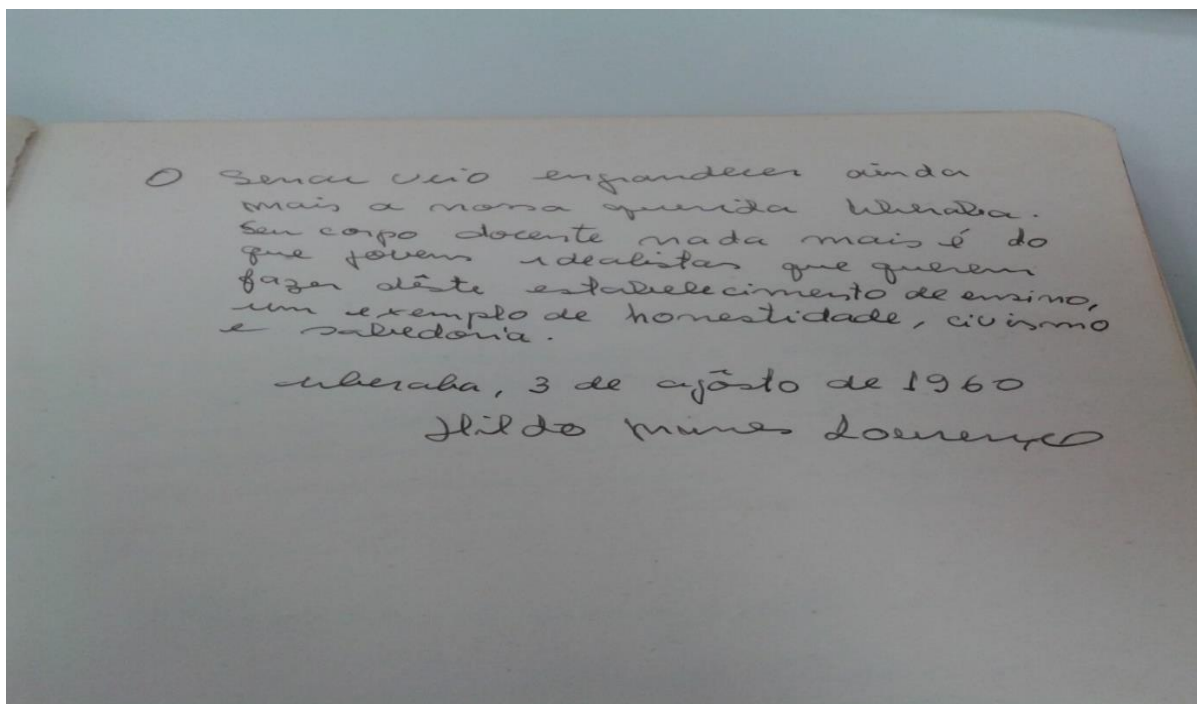 O Senac veio engrandecer ainda
mais a nossa querida Uberaba.
Seu corpo docente nada mais é do
que jovens idealistas que querem
fazer dêste estabelecimento de ensino,
um exemplo de honestidade, civismo
e sabedoria.
Uberaba, 3 de agôsto de 1960
Hildo Nunes Lourenço